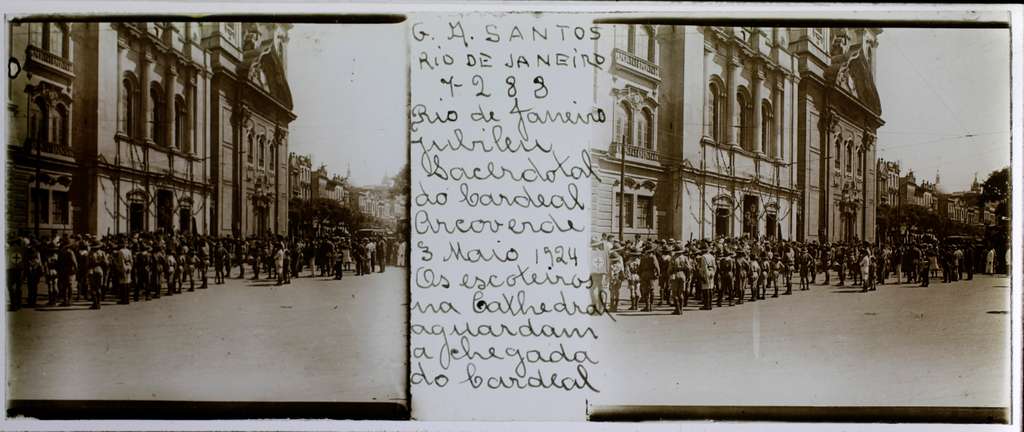 G. A. SANTOS
RIO DE JANEIRO
7288
Rio de Janeiro
Jubileu
Sacerdotal
do Cardeal
Arcoverde
3 Maio 1924
Os escoteiros
na Cathedral
aguardam
a chegada
do Cardeal